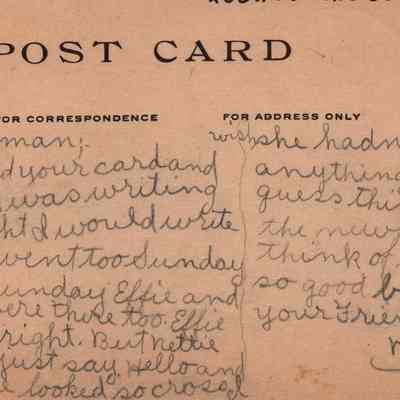 POST CARD
FOR CORRESPONDENCE
FOR ADDRESS ONLY
man;
d your card and
was writing
ht I would write
went too Sunday
unday Effie and
ere there too. Effie
right. But Nettie
just say Hello and
e looked so cross I
wish she hadn
anything
guess thi
the new
think of
so good b
your Frien